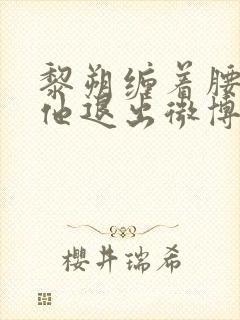 黎朔缠着腰
他退出微博
櫻井瑞希